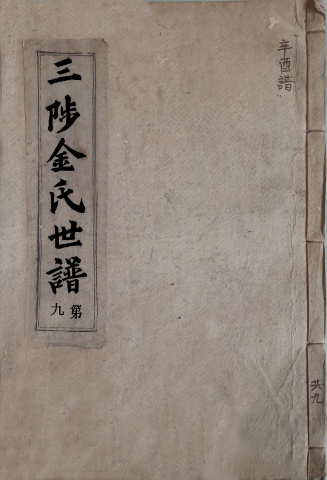 辛酉譜
三陟金氏世譜
第九
共九